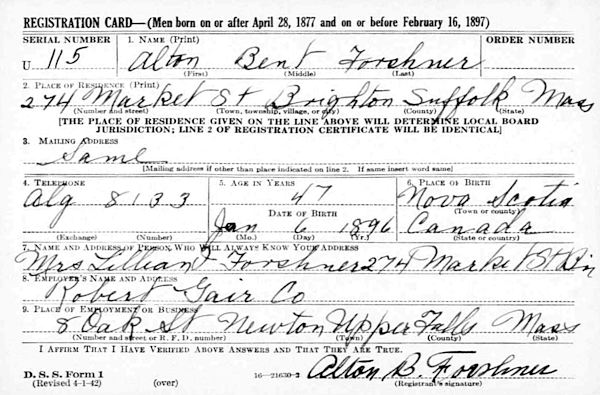 REGISTRATION CARD—(Men born on or after April 28, 1877 and on or before February 16, 1897)
SERIAL NUMBER 1. NAME (Print) ORDER NUMBER
U 115 Alton Bent Forshner
(First) (Middle) (Last)
2. PLACE OF RESIDENCE (Print)
274 Market St Brighton Suffolk Mass
(Number and street) (Town, township, village, or city) (County) (State)
[THE PLACE OF RESIDENCE GIVEN ON THE LINE ABOVE WILL DETERMINE LOCAL BOARD
JURISDICTION; LINE 2 OF REGISTRATION CERTIFICATE WILL BE IDENTICAL]
3. MAILING ADDRESS
Same
[Mailing address if other than place indicated on line 2. If same insert word same]
4. TELEPHONE 5. AGE IN YEARS 6. PLACE OF BIRTH
Alg 8133 47 Nova Scotia
DATE OF BIRTH (Town or county)
Jan 6 1896 Canada
(Exchange) (Number) (Mo.) (Day) (Yr.) (State or country)
7. NAME AND ADDRESS OF PERSON WHO WILL ALWAYS KNOW YOUR ADDRESS
Mrs Lillian Forshner 274 Market St
8. EMPLOYER'S NAME AND ADDRESS
Robert Gair Co
9. PLACE OF EMPLOYMENT OR BUSINESS
8 Oak St Newton Upper Falls Mass
(Number and street or R. F. D. number) (Town) (County) (State)
I AFFIRM THAT I HAVE VERIFIED ABOVE ANSWERS AND THAT THEY ARE TRUE.
D. S. S. Form 1 Alton B. Forshner
(Revised 4-1-42) (over) 16—21630-2 (Registrant's signature)